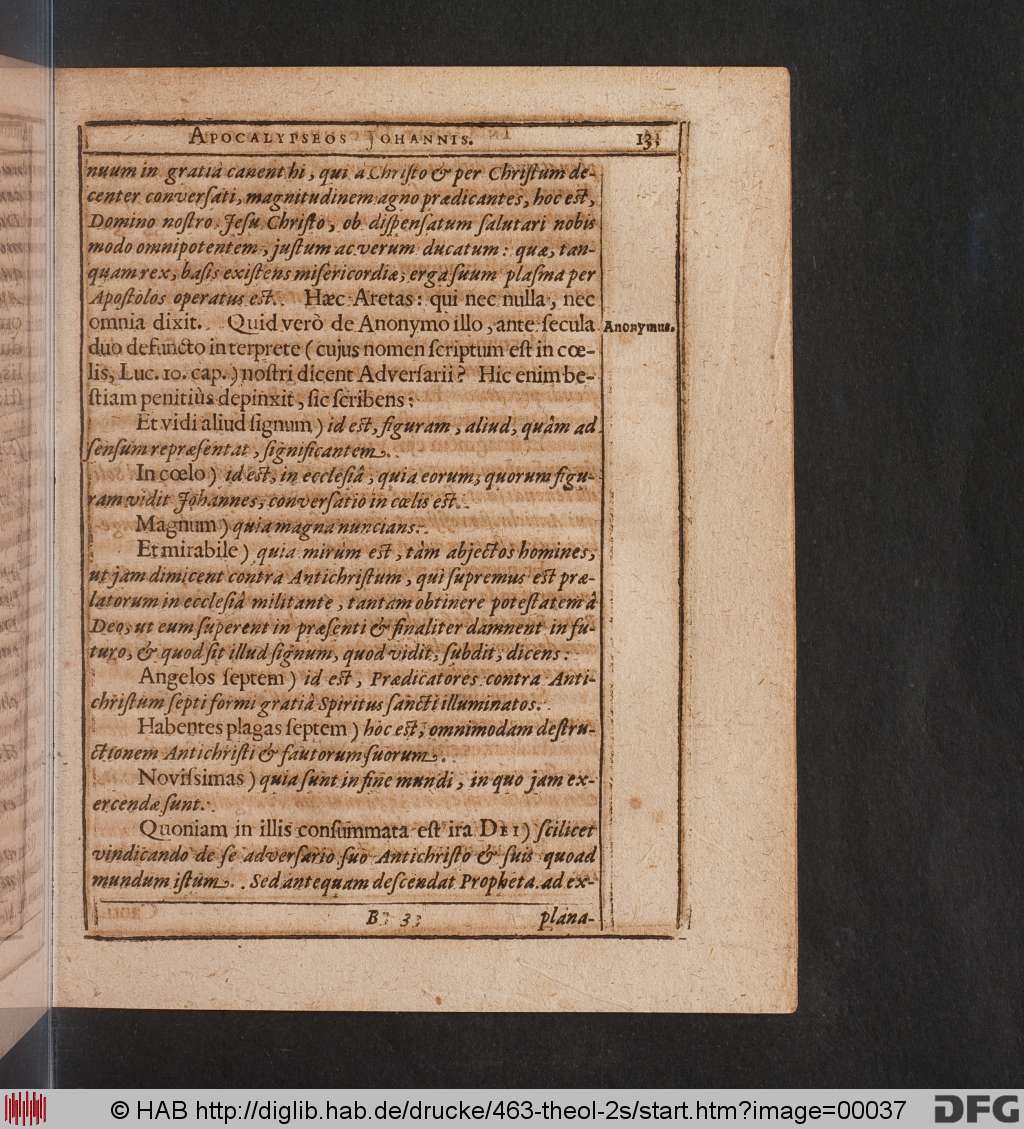 APOCALYPSEOS JOHANNIS. 13
nuum in gratiâ canent hi, qui à Chriſto & per Chriſtum de-
center converſati, magnitudinem agno prædicantes, hoc est,
Domino noſtro Jeſu Chriſto, ob diſpenſatum ſalutari nobis
modo omnipotentem, juſtum ac verum ducatum: quæ, tan-
quam rex, baſis exiſtens miſericordiæ, erga ſuum plaſma per
Apoſtolos operatus eſt. Hæc Aretas: qui nec nulla, nec
omnia dixit. Quid verò de Anonymo illo, ante ſecula
Anonymus.
duo defuncto interprete (cujus nomen ſcriptum eſt in cœ-
lis, Luc. 10. cap.) noſtri dicent Adverſarii? Hic enim be-
ſtiam penitiùs depinxit, ſic ſcribens:
Et vidi aliud ſignum) id eſt, figuram, aliud, quàm ad
ſenſum repræſentat, ſignificantem.
In cœlo) id eſt, in eccleſiâ, quia eorum, quorum figu-
ram vidit Johannes, converſatio in cœlis eſt.
Magnum) quia magna nuncians.
Et mirabile) quia mirum eſt, tàm abjectos homines,
ut jam dimicent contra Antichriſtum, qui ſupremus eſt præ-
latorum in eccleſiâ militante, tantam obtinere poteſtatem â
Deo, ut eum ſuperent in præſenti & finaliter damnent in fu-
turo, & quod ſit illud ſignum, quod vidit, ſubdit, dicens:
Angelos ſeptem) id eſt, Prædicatores contra Anti-
chriſtum ſepti formi gratiâ Spiritus ſancti illuminatos.
Habentes plagas ſeptem) hoc eſt, omnimodam deſtru-
ctionem Antichriſti & fautorum ſuorum.
Noviſsimas) quia ſunt in fine mundi, in quo jam ex-
ercendæ ſunt.
Quoniam in illis conſummata eſt ira DEI) ſcilicet
vindicando de ſe adverſario ſuo Antichriſto & ſuis quoad
mundum iſtum. Sed antequam deſcendat Propheta ad ex-
B 3 plana-
© HAB http://diglib.hab.de/drucke/463-theol-2s/start.htm?image=00037 DFG